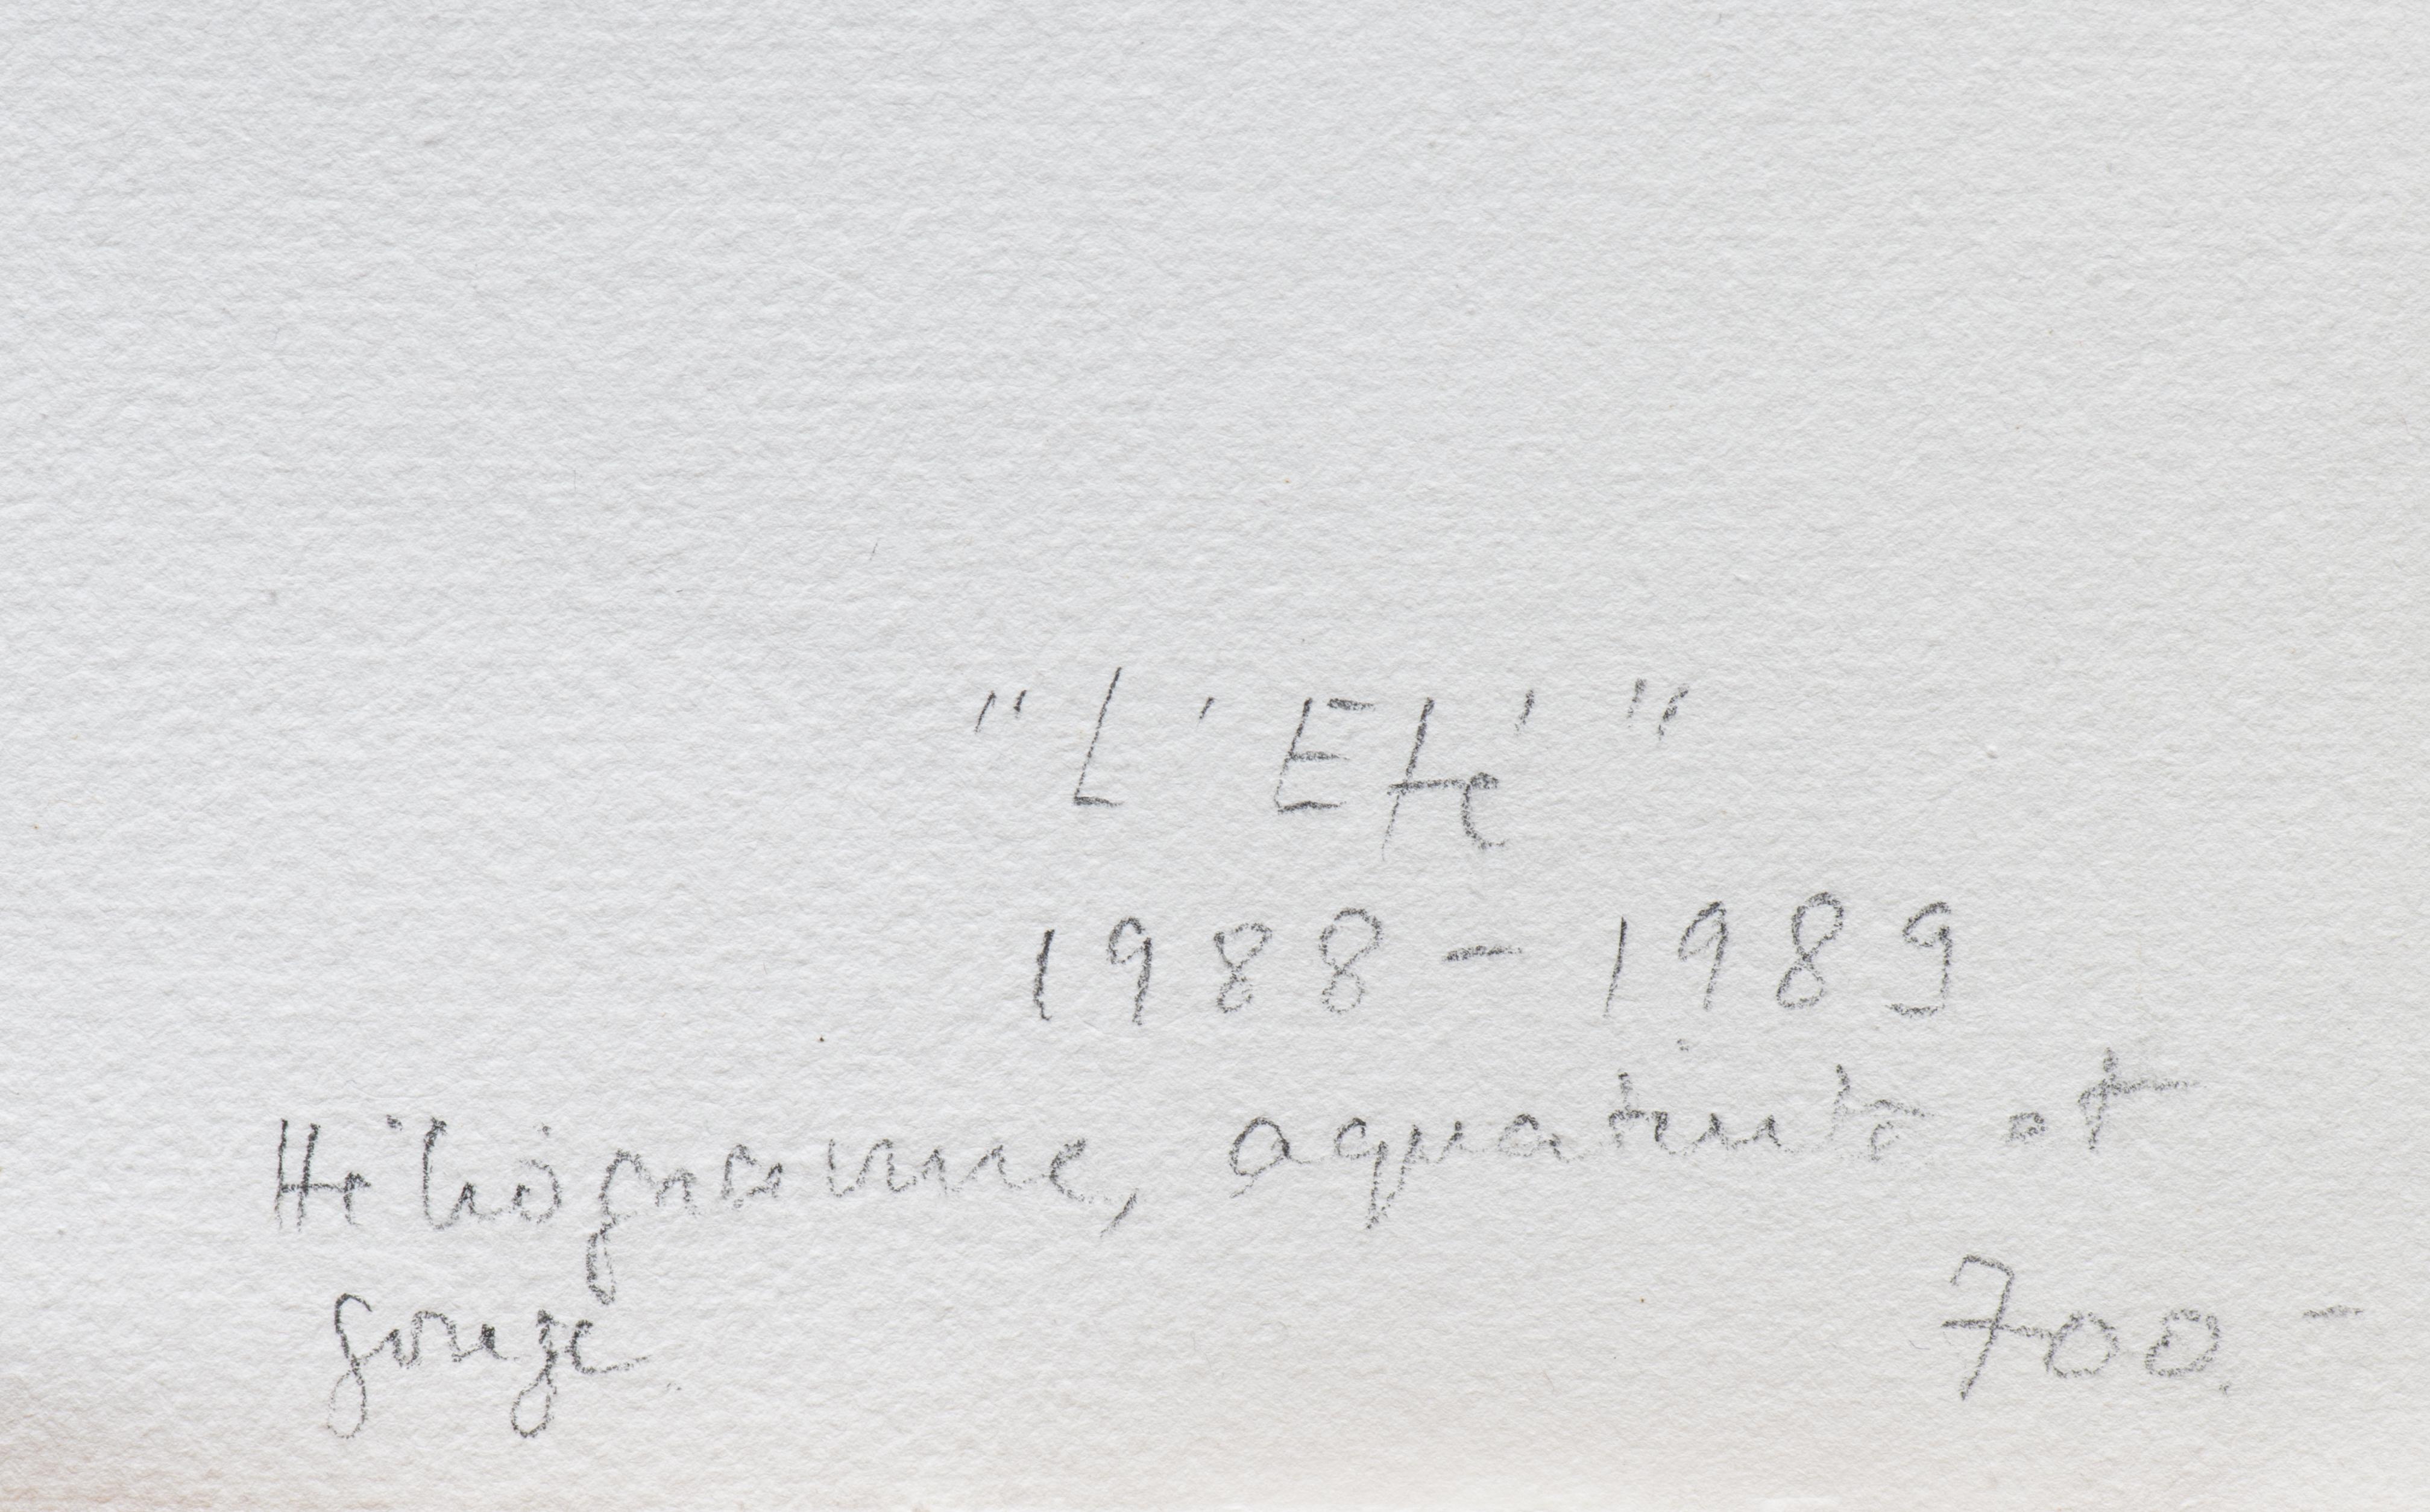 "L'Eté"
1988-1989
Héliogravure, aquatinte et
gouge
700.-